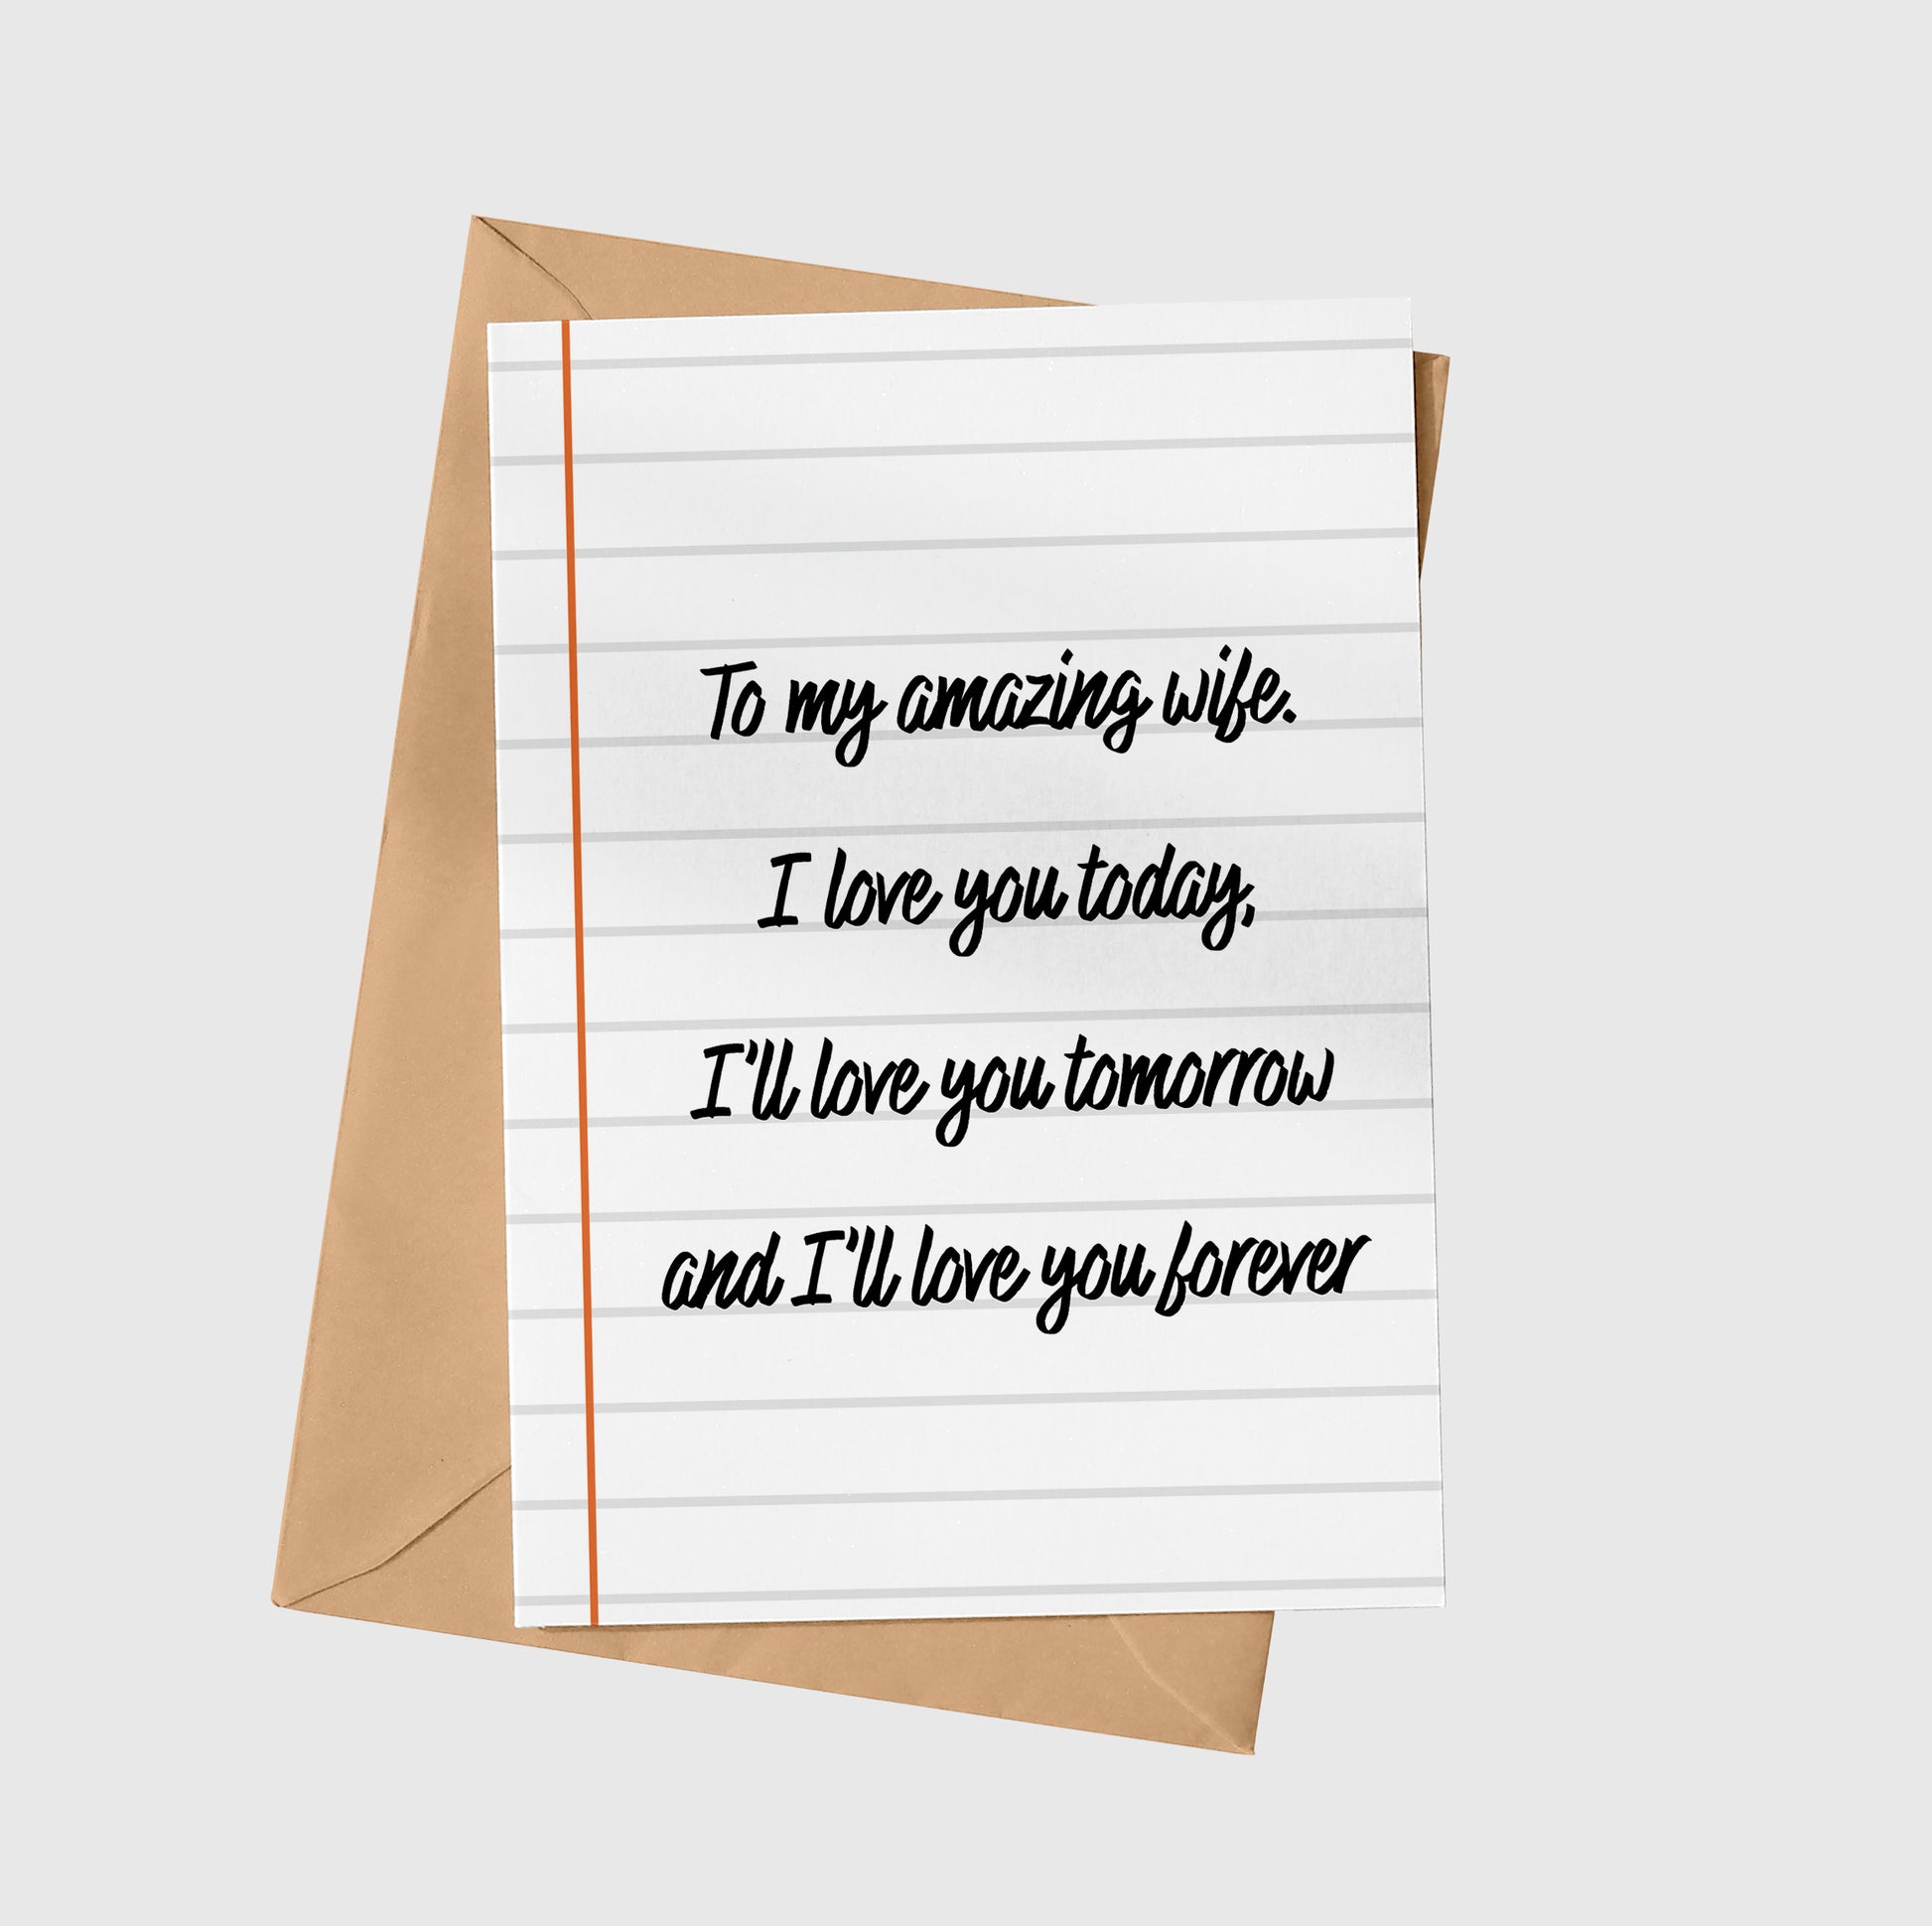 To my amazing wife.
I love you today,
I'll love you tomorrow
and I'll love you forever